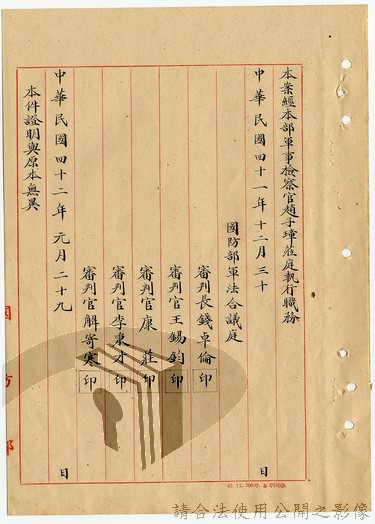 本案經本部軍事檢察官趙子璋蒞庭執行職務
中華民國四十一年十二月三十日
國防部軍法合議庭
審判長錢卓倫印
審判官王錫鈞印
審判官康 莊印
審判官李東才印
審判官解寄寒印
中華民國四十二年元月二十九日
本件證明與原本無異
國方部
請合法使用公開之影像